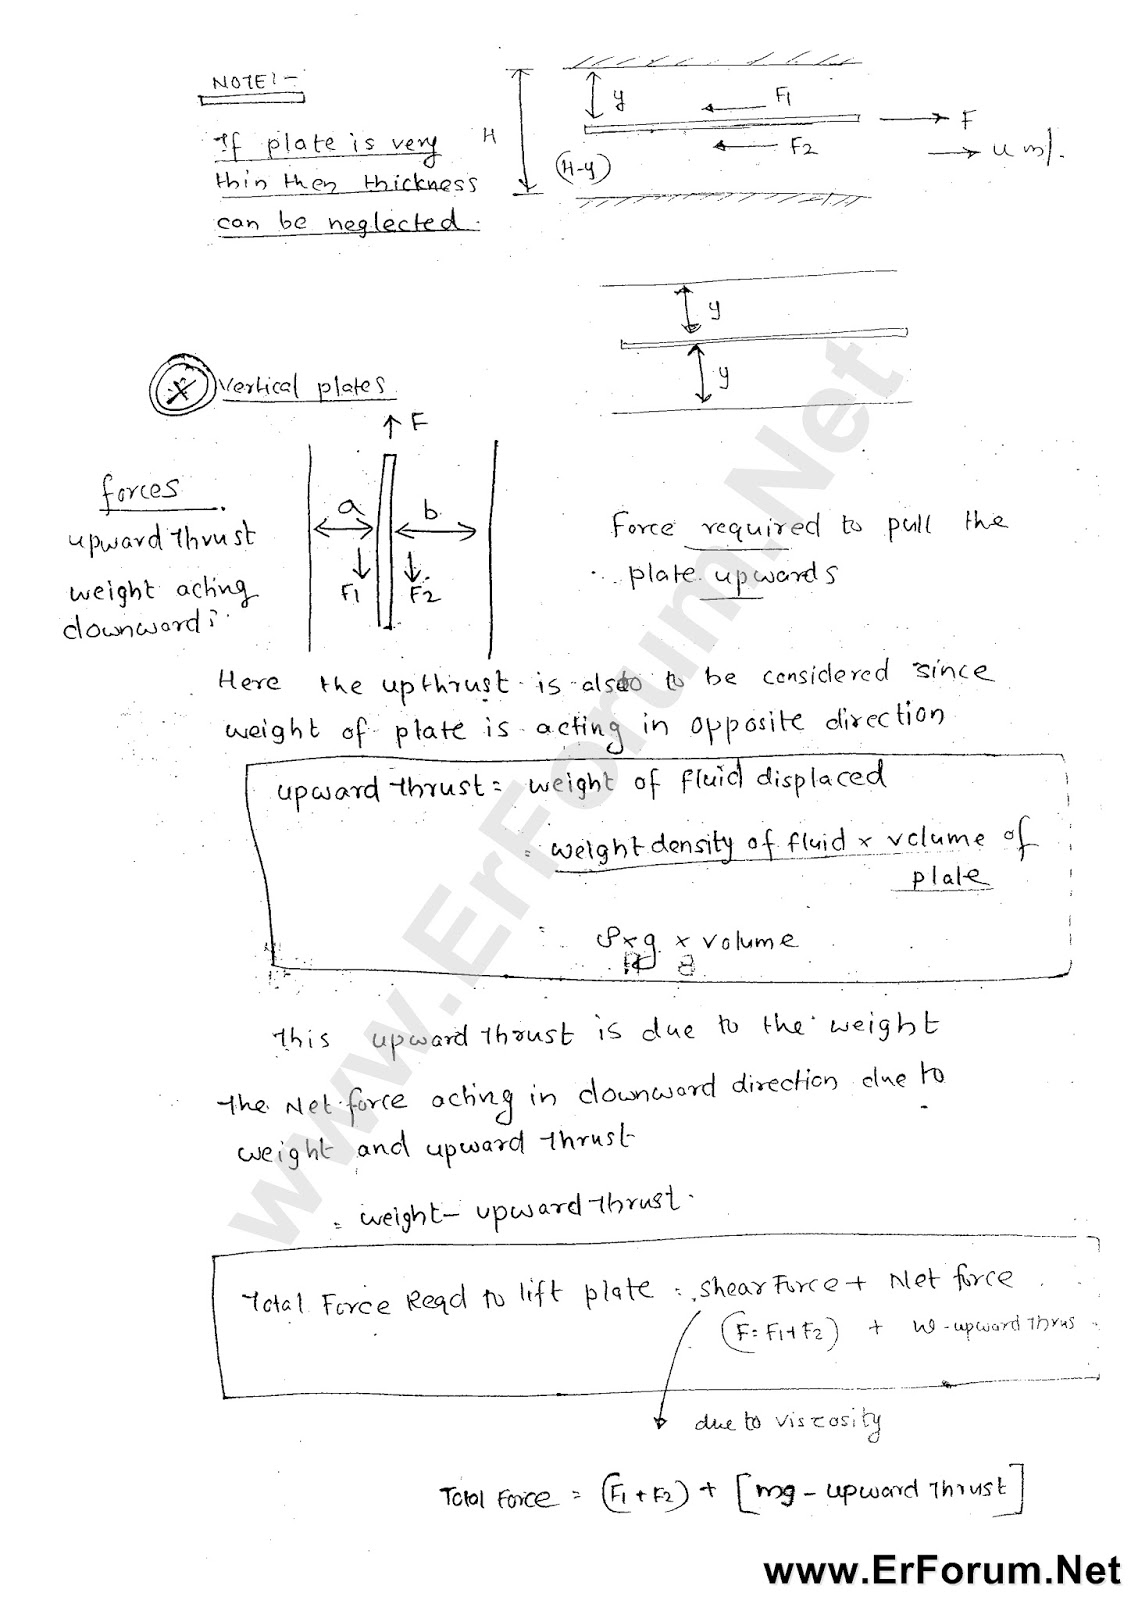 NOTE:-
If plate is very
thin then thickness
can be neglected.
H
y
F1
F2
(H-y)
F
u m/s.
y
y
* vertical plates
F
forces
upward thrust
weight acting
downward:
a
b
F1
F2
Force required to pull the
plate upwards
Here the upthrust is also to be considered since
weight of plate is acting in opposite direction
upward thrust = weight of fluid displaced
= weight density of fluid x volume of
plate
= ρ x g x volume
This upward thrust is due to the weight
The Net force acting in downward direction due to
weight and upward thrust
= weight - upward thrust.
Total Force Reqd to lift plate = shear Force + Net force
(F = F1 + F2) + w - upward thrus
due to viscosity
Total Force = (F1 + F2) + [mg - upward thrust]
www.ErForum.Net
www.ErForum.Net